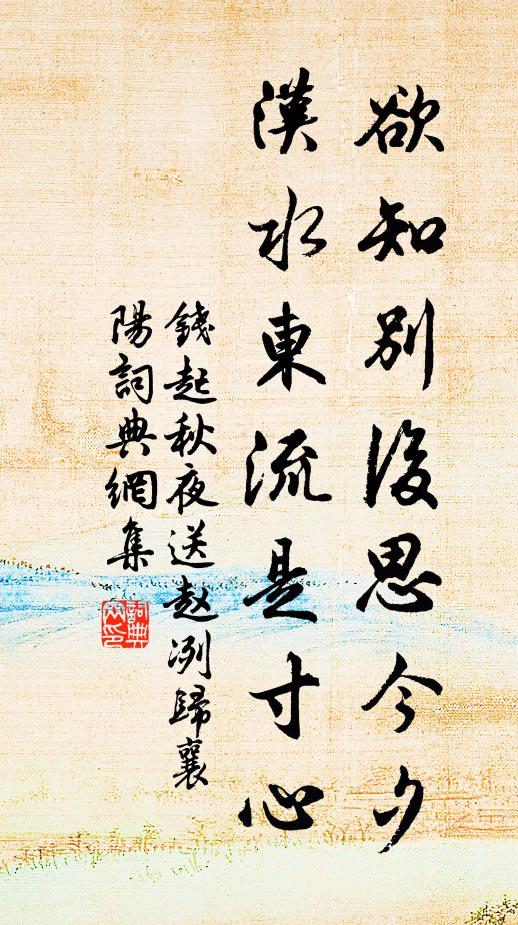 欲知別後思今夕
漢水東流是寸心
錢起秋夜送赵冽歸襄
陽詞典網集
詞典